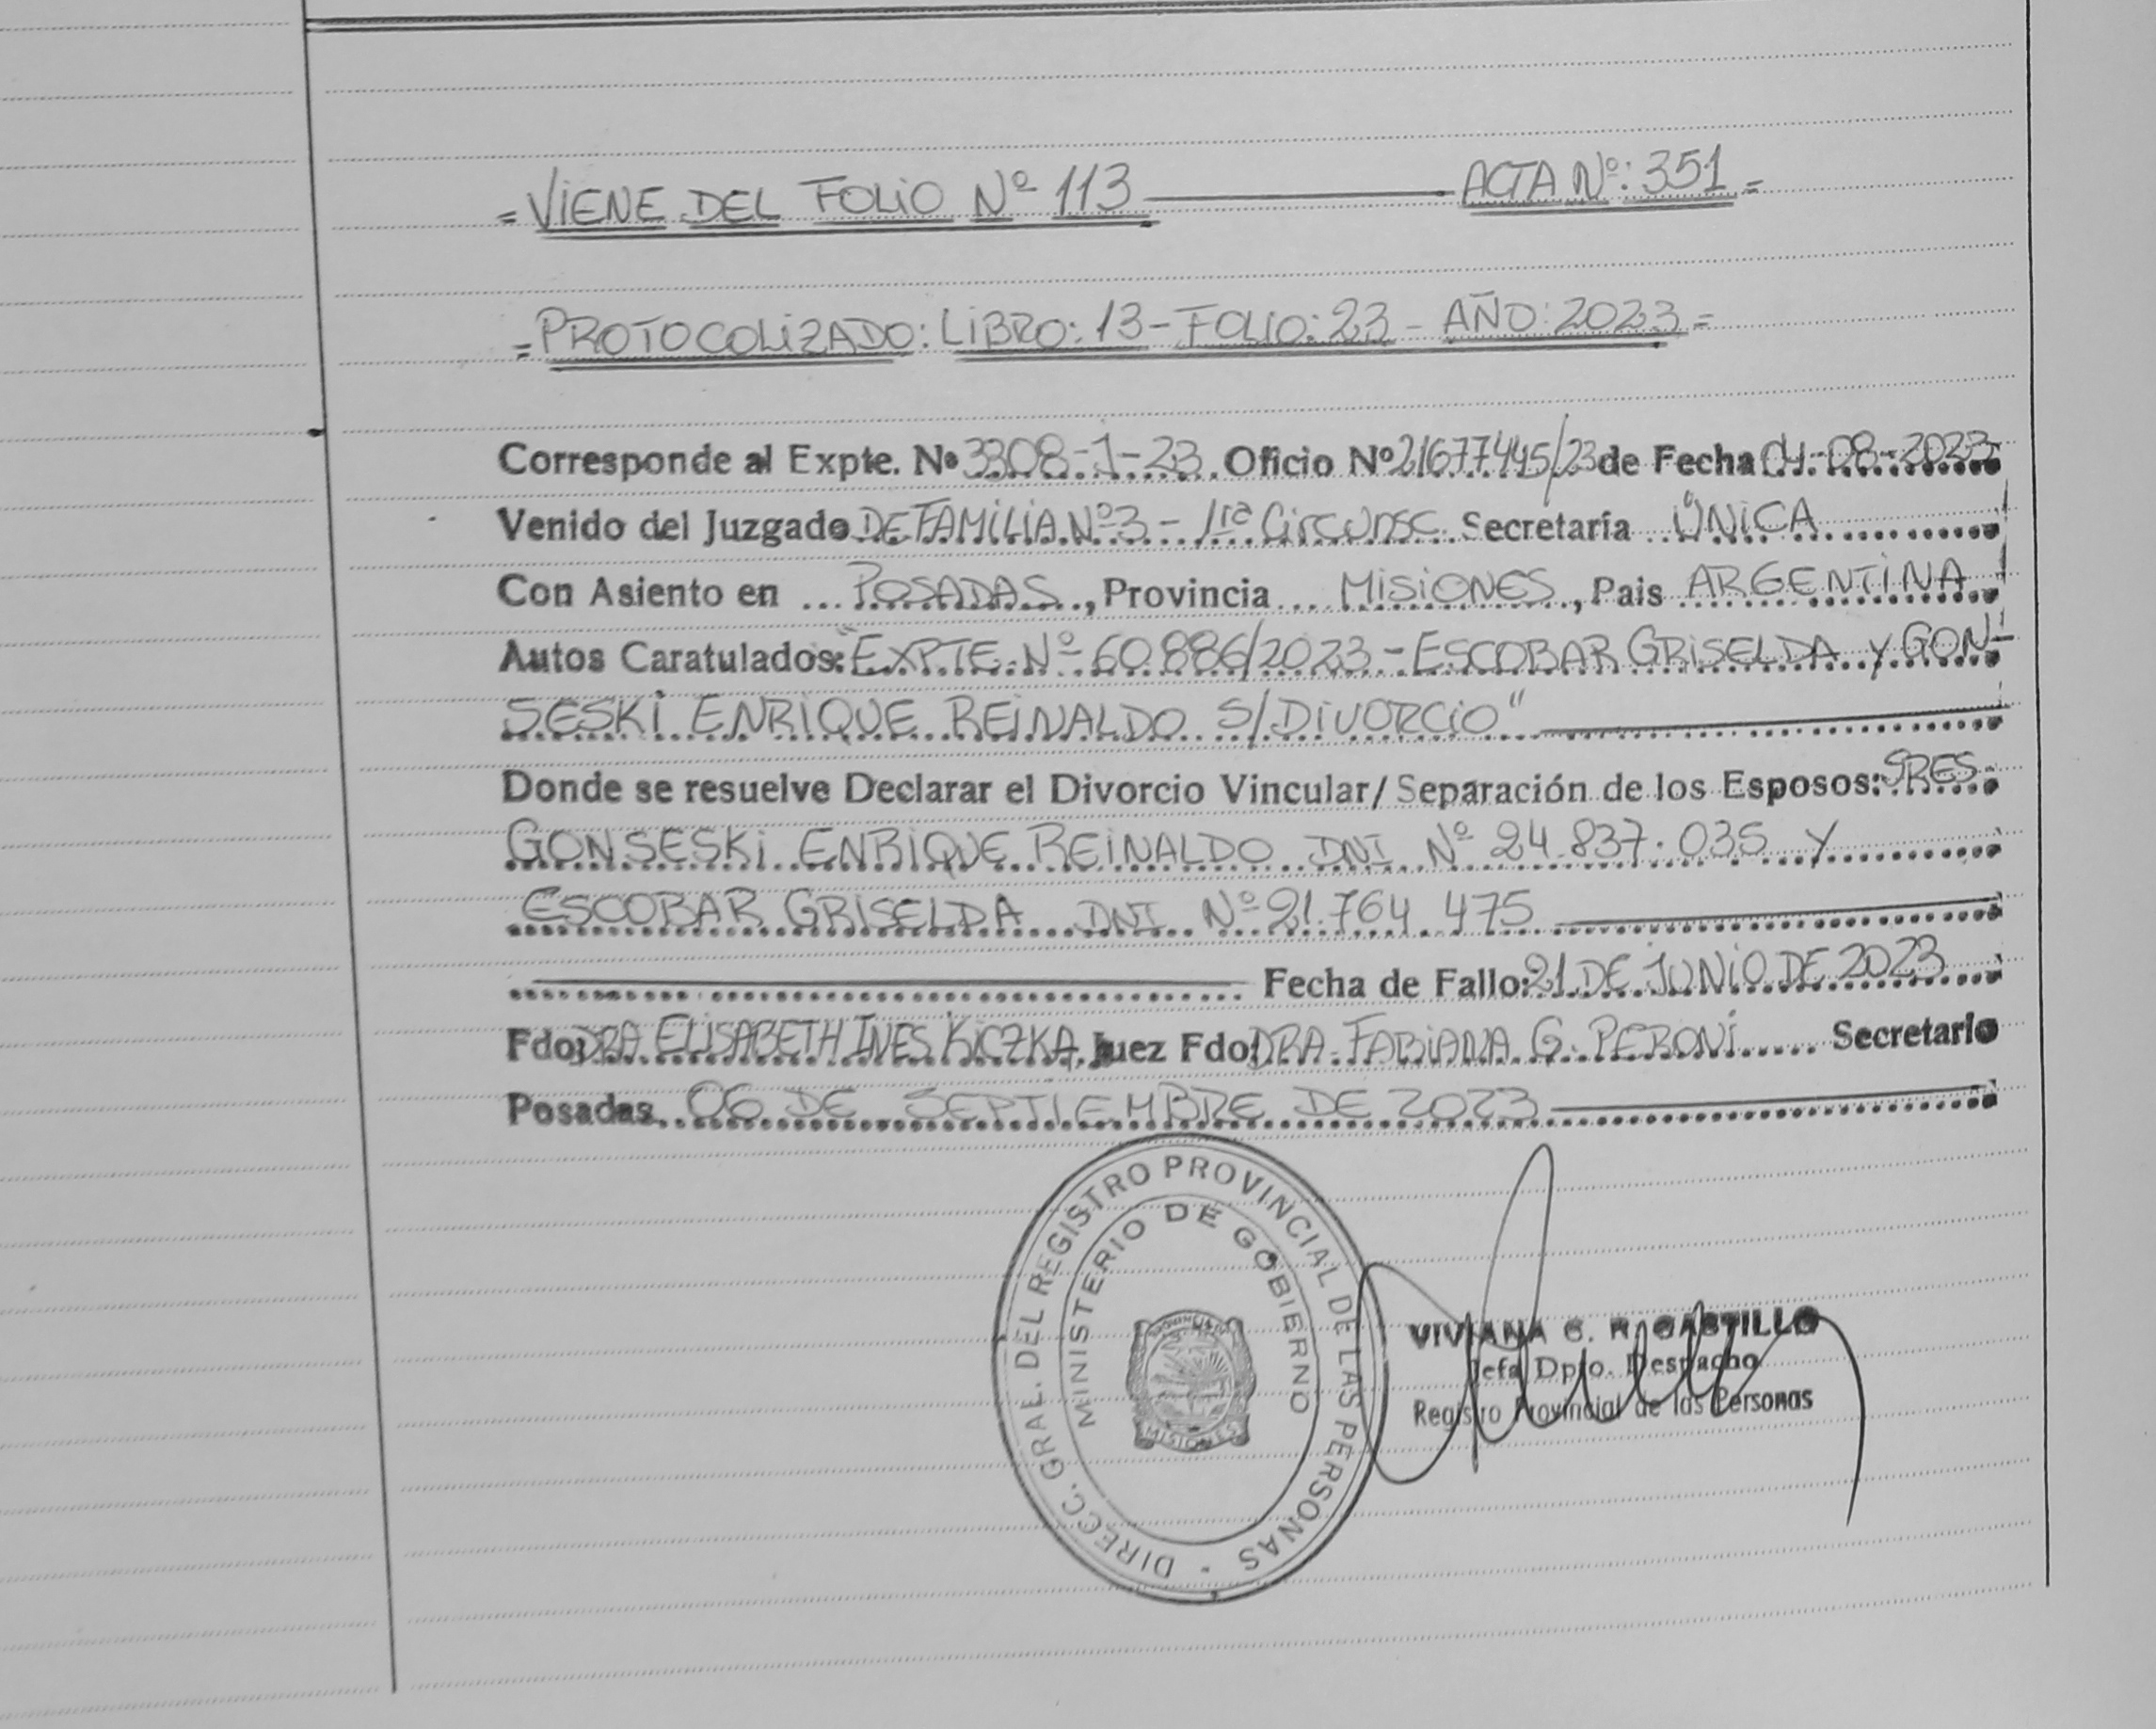 = VIENE DEL FOLIO Nº 113 ——— ACTA Nº: 351 =
= PROTOCOLIZADO: LIBRO: 13 - FOLIO: 23 - AÑO: 2023 =
Corresponde al Expte. Nº 3308-1-23. Oficio Nº 21677445/23 de Fecha 04-08-2023
Venido del Juzgado DE FAMILIA Nº 3 - 1ra Circunsc. Secretaría ÚNICA
Con Asiento en POSADAS, Provincia MISIONES, Pais ARGENTINA
Autos Caratulados: "EXPTE. Nº 60.886/2023 - ESCOBAR GRISELDA Y GON-
SESKI ENRIQUE REINALDO S/DIVORCIO"
Donde se resuelve Declarar el Divorcio Vincular/Separación de los Esposos: SRES.
GONSESKI ENRIQUE REINALDO DNI Nº 24.837.035 Y
ESCOBAR GRISELDA DNI Nº 21.764.475
Fecha de Fallo: 21 DE JUNIO DE 2023
Fdo: DRA ELISABETH INES KICZKA. Juez Fdo: DRA. FABIANA G. PERONI Secretario
Posadas, 06 DE SEPTIEMBRE DE 2023
DIRECC. GRAL. DEL REGISTRO PROVINCIAL DE LAS PERSONAS -
MINISTERIO DE GOBIERNO
MISIONES
VIVIANA C. R. CASTILLO
Jefa Dpto. Despacho
Registro Provincial de las Personas